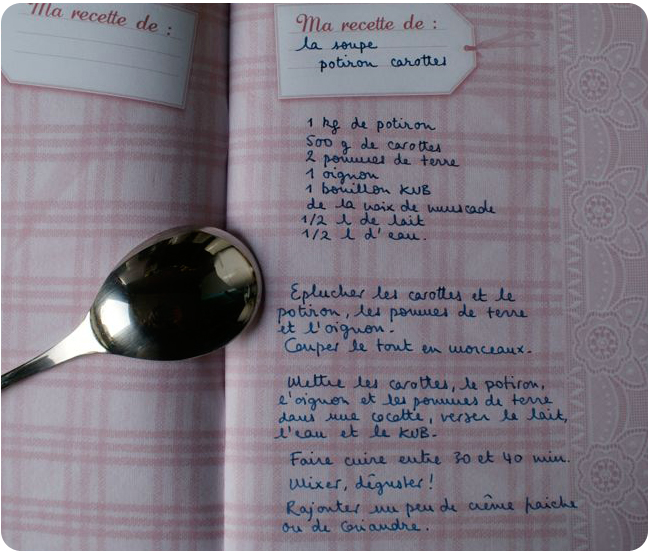 Ma recette de :
Ma recette de :
la soupe
potiron carottes
1 kg de potiron
500 g de carottes
2 pommes de terre
1 oignon
1 bouillon KUB
de la noix de muscade
1/2 l de lait
1/2 l d'eau.
Eplucher les carottes et le
potiron, les pommes de terre
et l'oignon.
Couper le tout en morceaux.
Mettre les carottes, le potiron,
l'oignon et les pommes de terre
dans une cocotte, verser le lait,
l'eau et le KUB.
Faire cuire entre 30 et 40 min.
Mixer, déguster !
Rajouter un peu de crème fraiche
ou de Coriandre.